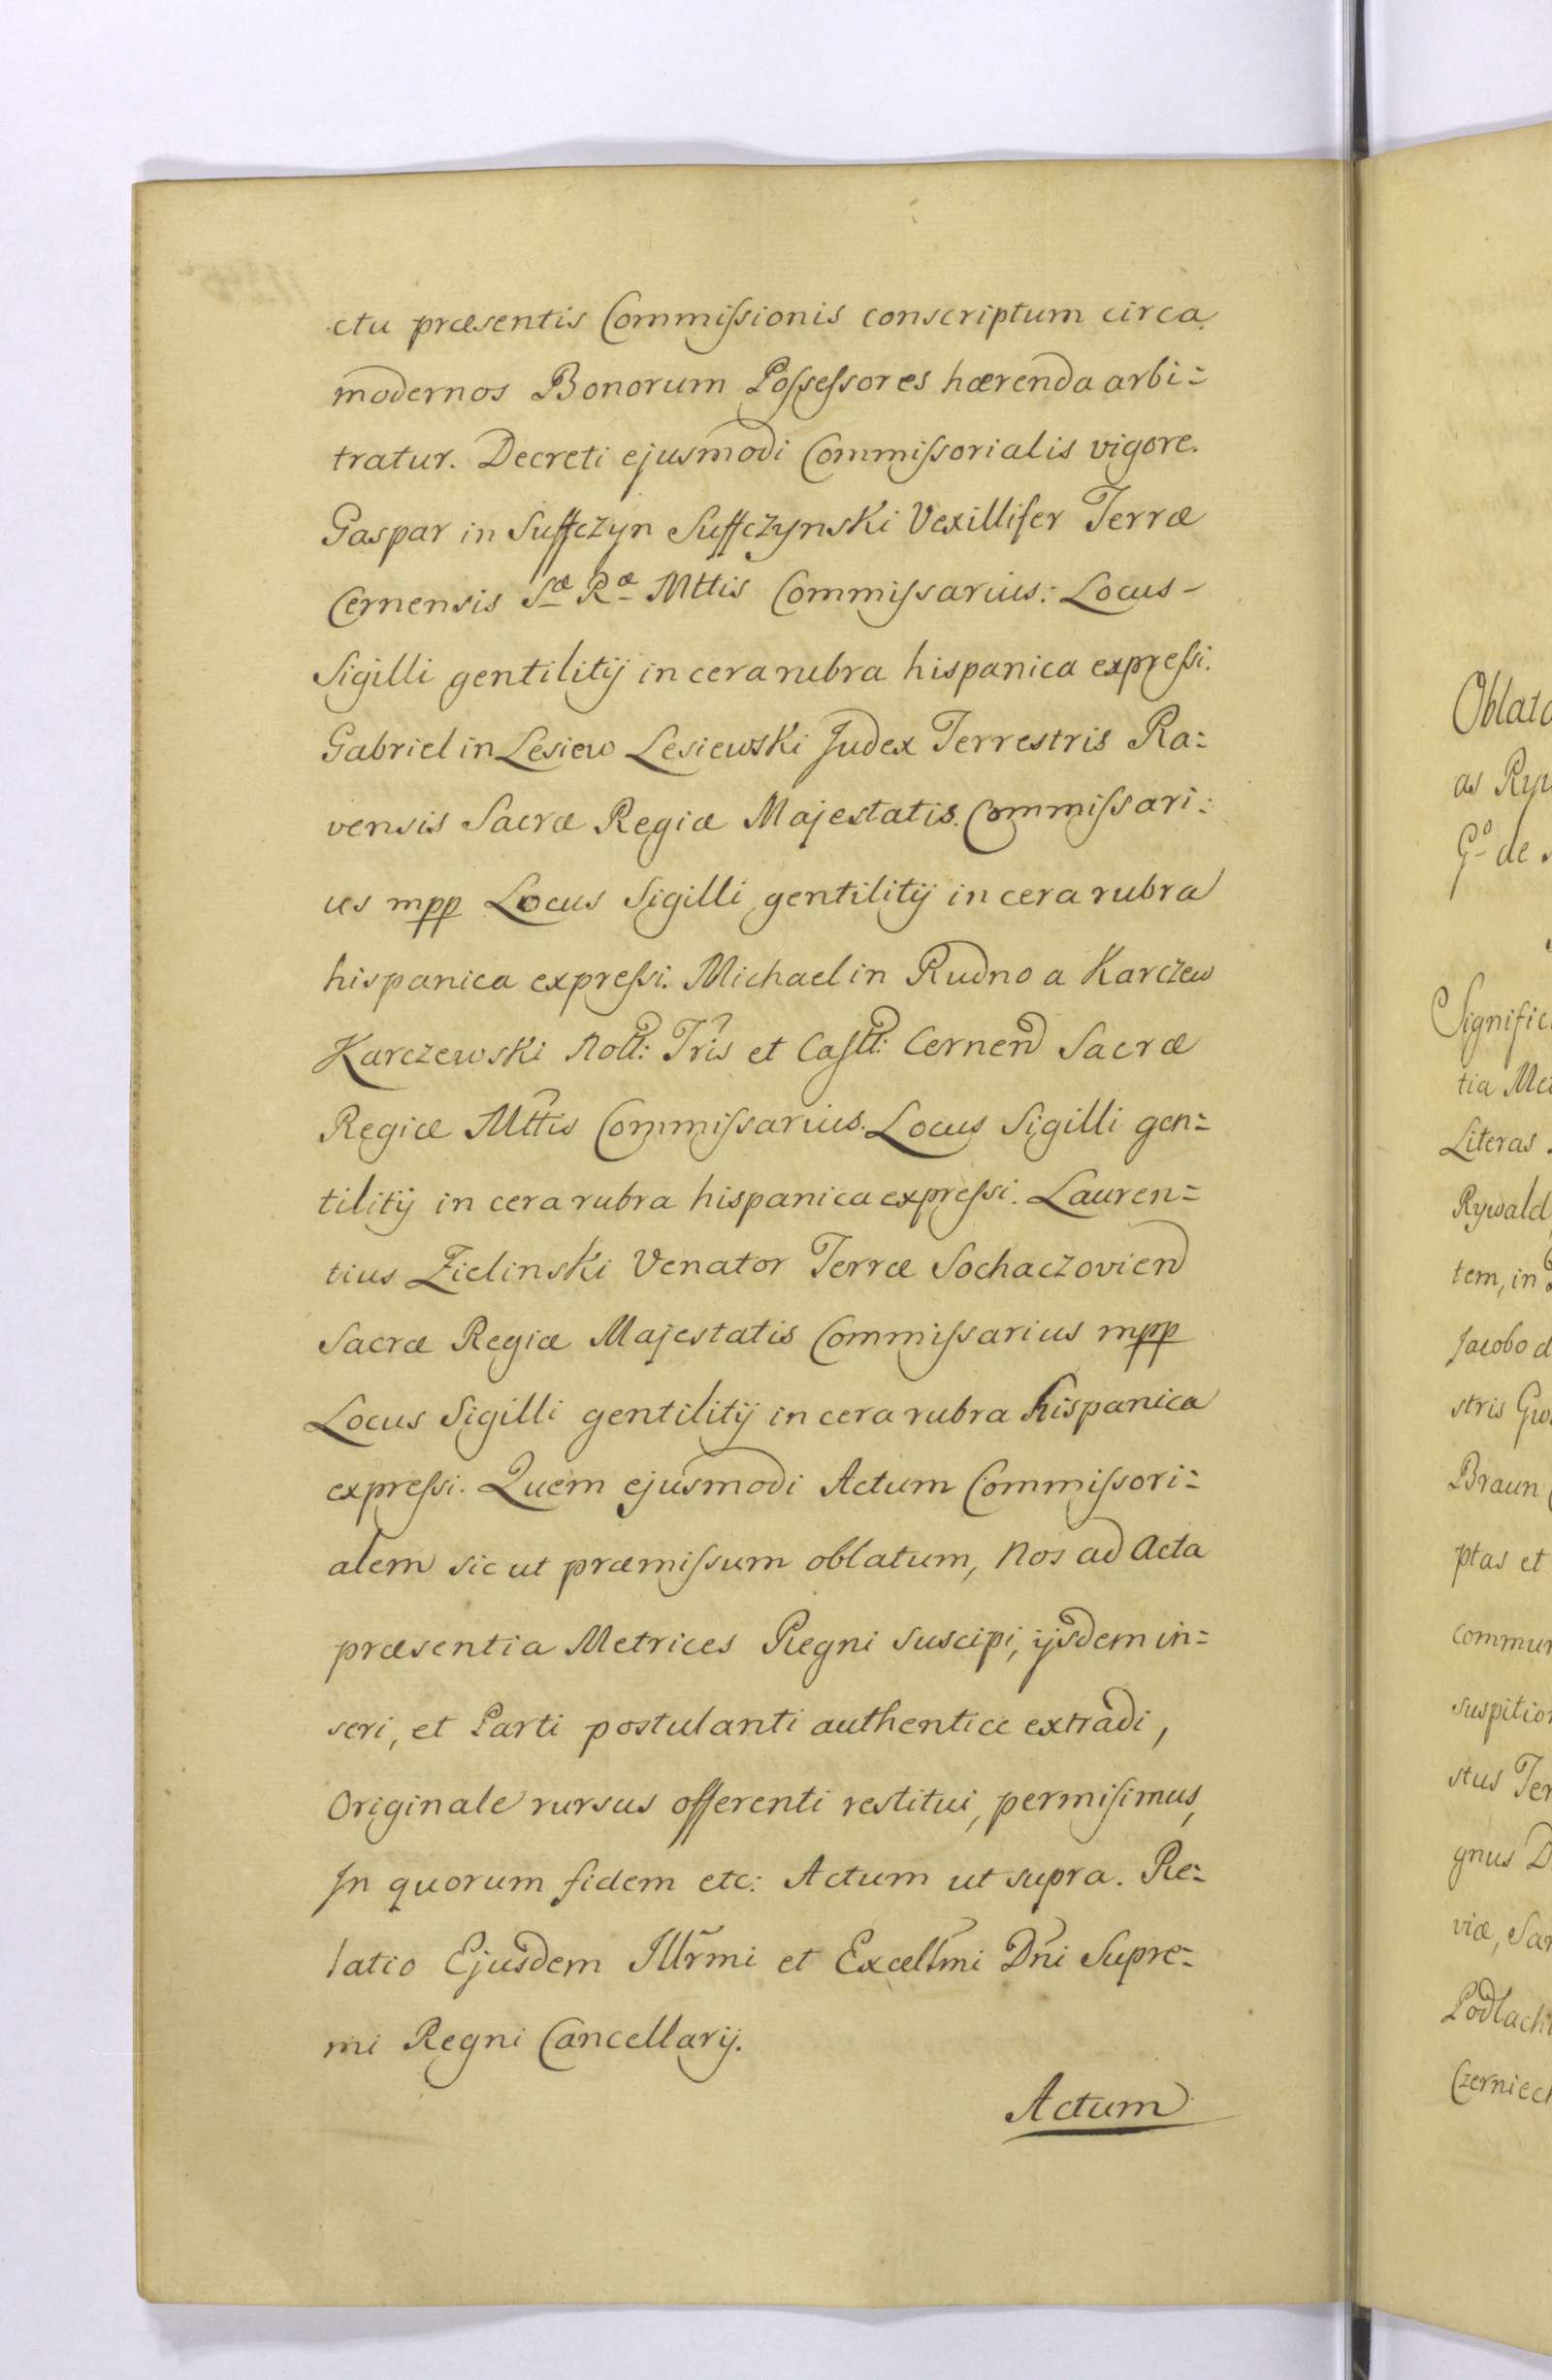 ctu præsentis Commissionis conscriptum circa
modernos Bonorum Possessores hærenda arbi=
tratur. Decreti ejusmodi Commissorialis vigore.
Gaspar in Suffczyn Suffczynski Vexillifer Terræ
Cernensis Sæ Ræ Mttis Commissarius: Locus-
Sigilli gentilitij in cera rubra hispanica expressi.
Gabriel in Lesiew Lesiewski Judex Terrestris Ra=
vensis Sacræ Regiæ Majestatis. Commissari=
us mpp Locus Sigilli gentilitij in cera rubra
hispanica expressi. Michael in Rudno a Karczew
Karczewski Nott: Tris et Castt: Cernend Sacræ
Regiæ Mttis Commissarius. Locus Sigilli gen=
tilitij in cera rubra hispanica expressi. Lauren=
tius Zielinski Venator Terræ Sochaczovien
Sacræ Regiæ Majestatis Commissarius mpp
Locus Sigilli gentilitij in cera rubra hispanica
expressi. Quem ejusmodi Actum Commissori=
alem sic ut præmissum oblatum, Nos ad Acta
præsentia Metrices Regni suscipi, ijsdem in=
seri, et Parti postulanti authentice extradi,
Originale rursus offerenti restitui, permisimus,
In quorum fidem etc: Actum ut supra. Re=
latio Ejusdem Illrmi et Excellmi Dni Supre=
mi Regni Cancellarij.
Actum
Oblat
as Ryw
Go de
Signific
tia Me
Literas
Rywald
tem, in
Jacobo d
stris Gw
Braun
ptas et
commun
suspition
stus Ter
gnus D
viæ, Sa
Podlach
Czerniec